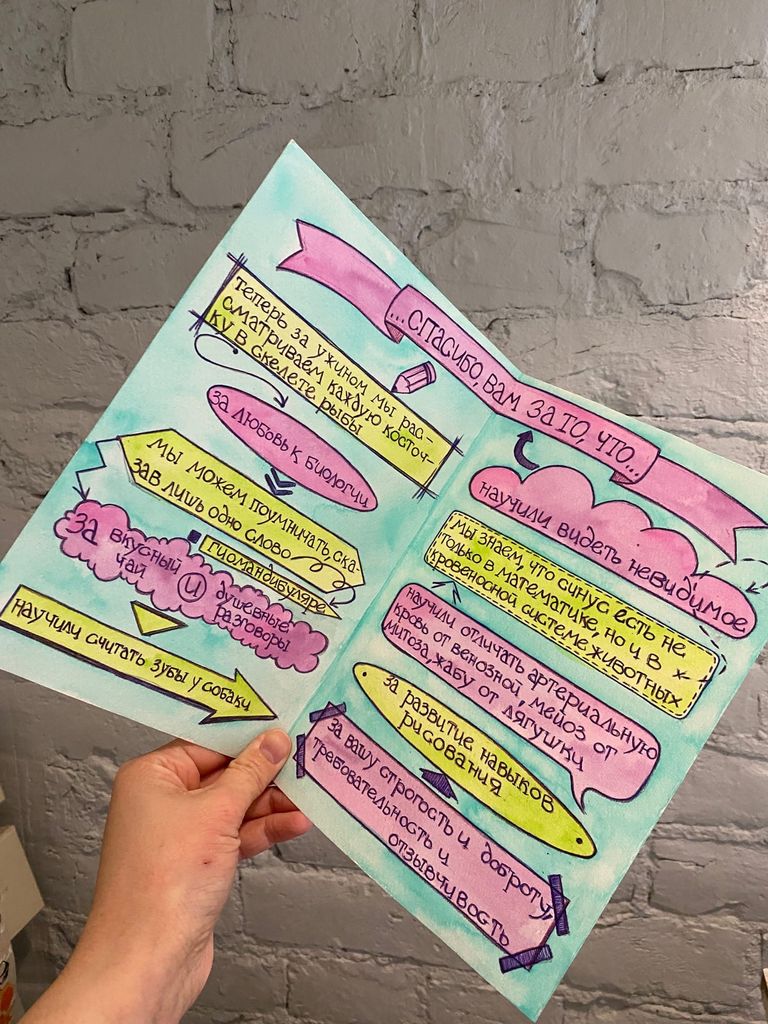 ...СПАСИБО ВАМ ЗА ТО, ЧТО...
теперь за ужином мы рас-
сматриваем каждую косточ-
ку в скелете рыбы
за любовь к биологии
мы можем поумничать, ска-
зав лишь одно слово
гиомандибуляре
За вкусный
чай
и
душевные
разговоры
научили считать зубы у собаки
научили видеть невидимое
Мы знаем, что синус есть не
только в математике, но и в
кровеносной системе животных
научили отличать артериальную
кровь от венозной, мейоз от
митоза, жабу от лягушки
за развитие навыков
рисования
за вашу строгость и доброту,
требовательность и
отзывчивость